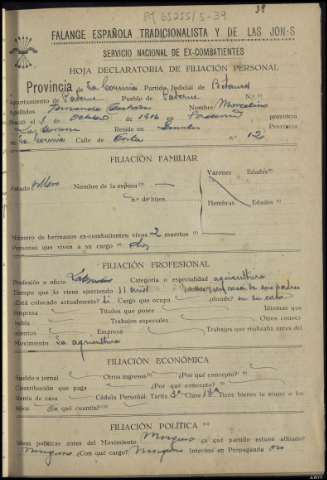 39
FALANGE ESPAÑOLA TRADICIONALISTA Y DE LAS JON-S
SERVICIO NACIONAL DE EX-COMBATIENTES
HOJA DECLARATORIA DE FILIACIÓN PERSONAL
Provincia de La Coruña Partido Judicial de Betanzos
Ayuntamiento de Paderne Pueblo de Paderne N.º
Apellidos Nombre Marcelino
Nació el de Octubre de 1916 en Paderne provincia
La Coruña Reside en Provincia
La Coruña Calle de n.º 12
FILIACIÓN FAMILIAR
Estado Soltero Nombre de la esposa Varones Edades
n.º de hijos
Hembras Edades
Número de hermanos ex-combatientes vivos 2 muertos
Personas que viven a su cargo
FILIACIÓN PROFESIONAL
Profesión u oficio Labrador Categoría o especialidad agricultura
Tiempo que la viene ejerciendo 11 años casa de sus padres
Está colocado actualmente? Si Cargo que ocupa ¿donde? en su casa
Empresa Títulos que posee Idiomas que
habla Trabajos especiales Otros conoci-
mientos Empresa Trabajos que realizaba antes del
Movimiento La agricultura
FILIACIÓN ECONÓMICA
Sueldo o jornal Otros ingresos ¿Por qué concepto?
Contribución que paga ¿Por qué concepto?
Renta de casa Cédula Personal: Tarifa 3ª Clase 13ª Tiene bienes la mujer o los
hijos En qué cuantía?
FILIACIÓN POLÍTICA
Ideas políticas antes del Movimiento Ninguna ¿A qué partido estuvo afiliado?
Ninguno ¿Con qué cargo? Ninguno Intervino en Propaganda no